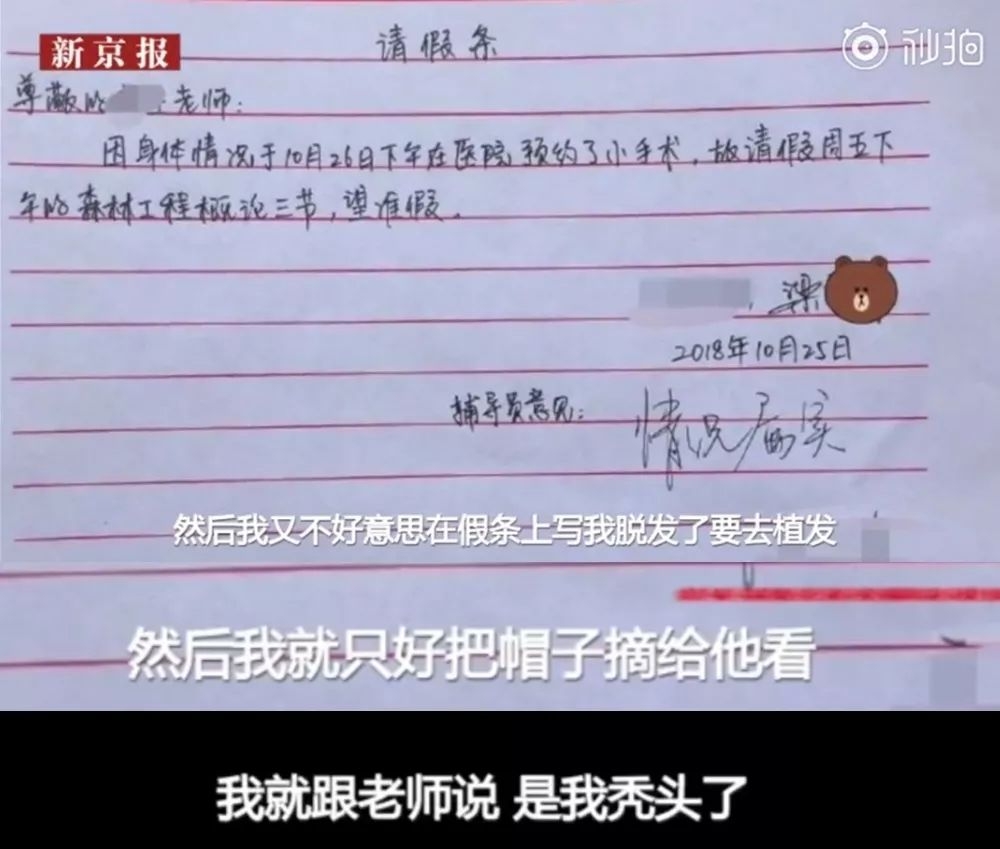 新京报
秒拍
请假条
尊敬的 老师：
因身体情况于10月26日下午在医院预约了小手术，故请假周五下
午的森林工程概论三节，望准假。
梁
2018年10月25日
辅导员意见：
情况属实
然后我又不好意思在假条上写我脱发了要去植发
然后我就只好把帽子摘给他看
我就跟老师说 是我秃头了